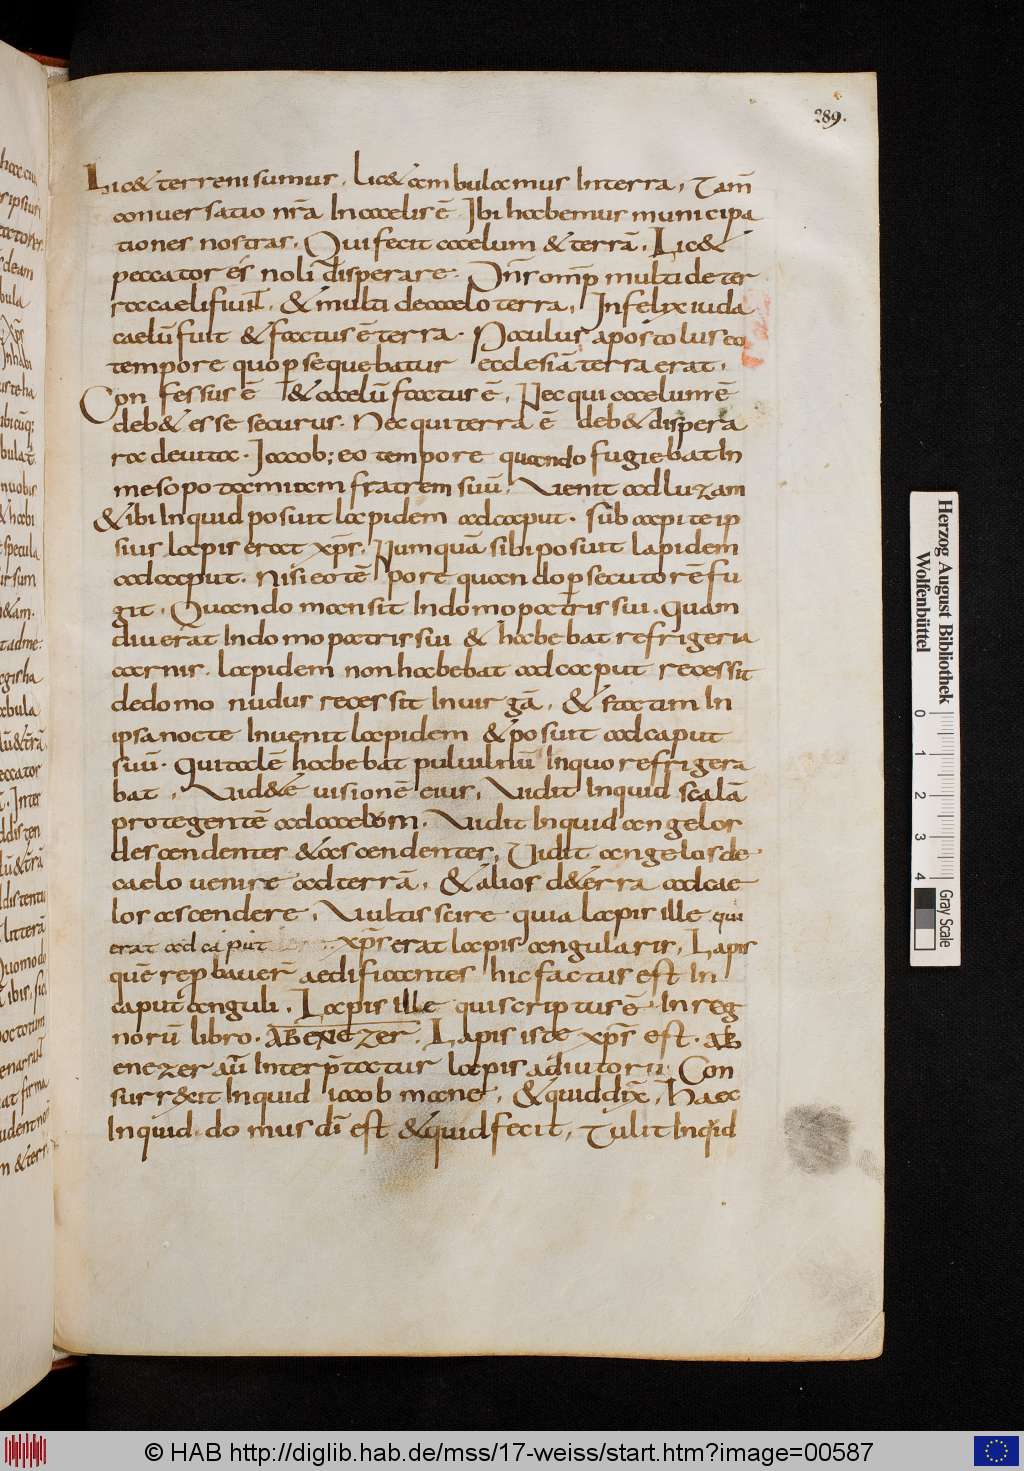 289.
Lic& terreni sumus. lic& ambulamus In terra, Tam̄
conversatio nr̄a In caelis ē. Ibi habemus municipa
tiones nostras. Qui fecit caelum & terrā. Lic&
peccator és noli disperare. In̄r om̄p multi de ter
ra caeli fiuń. & multi de caelo terra, Infelix iuda
caelū fuit & factus ē terra. Paulus apostolus eo
tempore quo p sequebatur ecclesiā terra erat.
Con fessus ē & caelū factus ē, Nec qui caelum ē
deb& esse securus. Nec qui terra ē deb& dispera
ra de vita. Iacob; eo tempore quando fugiebat In
mesopotamiam fratrem suū, Venit ad luzam
& ibi Inquid posuit lapidem ad caput. sub capite ip
sius lapis erat xp̄s. Numquā sibi posuit lapidem
ad caput. Nisi eo tē pore quando p secutorē fu
git. Quando mansit In domo patris sui. Quam
diu erat In domo patris sui & habebat refrigeria
carnis. lapidem non habebat ad caput recessit
de domo nudus recessit In virgā, & statim In
ipsa nocte Invenit lapidem & posuit ad caput
suū. Qui talē habebat pulvillū In quo refrigera
bat, Vid&e visionē eius, Vidit Inquid scalā
protegentē ad caelum. Vidit Inquid angelos
descendentes & ascendentes, Vidit angelos de
caelo venire ad terrā, & alios d&erra ad cae
los ascendere, Vultis scire quia lapis ille qui
erat ad caput xp̄s erat lapis angularis, Lapis
quē rep bauer̄ aedificantes hic factus est In
caput anguli. Lapis ille qui scriptus ē In reg
norū libro. Abenezer. Lapis iste xp̄s est. Ab
enezer aū Interp̄tatur lapis adiutorii. Con
surrexit Inquid iacob mane, & quid dix̄, Haec
Inquid domus dī est & quid fecit, Tulit Inqid
Herzog August Bibliothek
Wolfenbüttel
0 1 2 3 4
Gray Scale
© HAB http://diglib.hab.de/mss/17-weiss/start.htm?image=00587